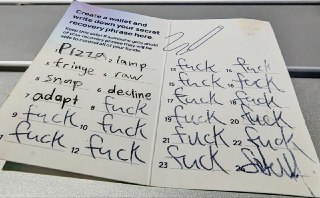 Create a wallet and
write down your secret
recovery phrase here
Keep this safe! If someone gets ahold
of your recovery phrase they will be
able to control all of your funds.
Pizza 2 lamp
3 fringe 4 raw
5 snap 6 decline
7 adapt 8 fuck
9 fuck 10 fuck
11 fuck 12 fuck
13 fuck 14 fuck
15 fuck 16 fuck
17 fuck 18 fuck
19 fuck 20 fuck
21 fuck 22 fuck
23 fuck